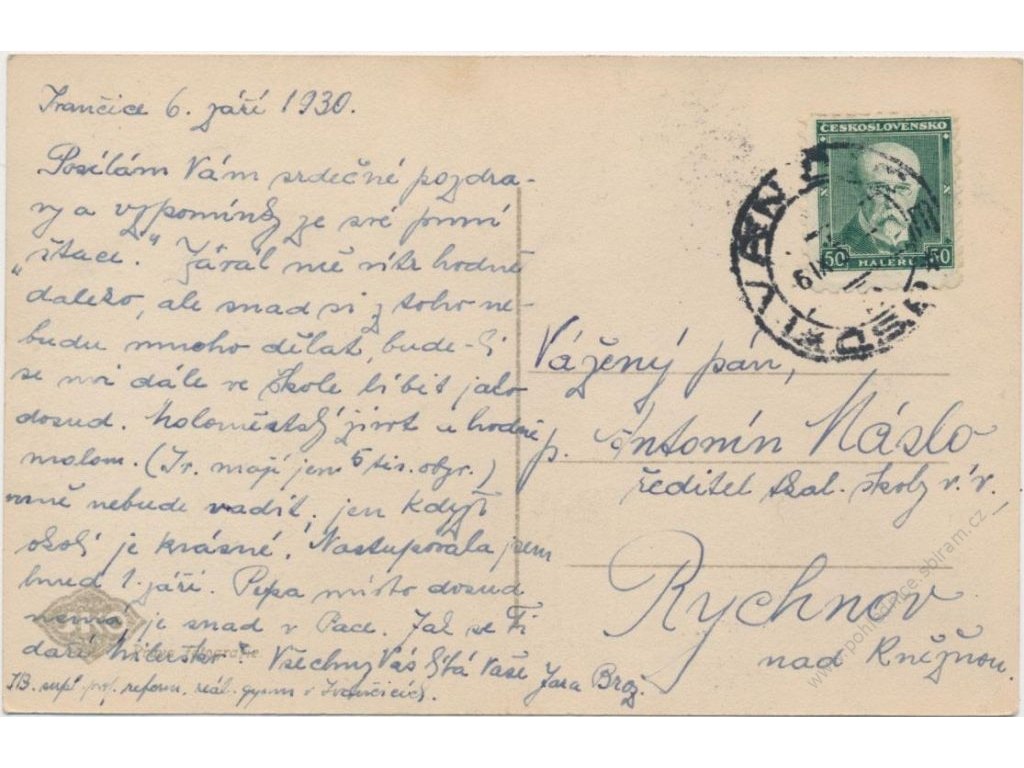 Ivančice 6. září 1930.
Posílám Vám srdečné pozdra-
vy a vzpomínky ze své první
„štace." Zavál mě vítr hodně
daleko, ale snad si z toho ne-
budu mnoho dělat, bude-li
se mi dále ve škole líbit jako
dosud. Maloměstský život v hodně
malom. (Iv. mají jen 5 tis. obyv.)
mně nebude vadit, jen když
okolí je krásné. Nastupovala jsem
hned 1. září. Pepa místo dosud
nemá, je snad v Pace. Jak se Ti
daří, Micusko? Všechny Vás líbá Vaše Jara Brož.
JB. supl. prof. reform. reál. gymn. v Ivančicích.
ČESKOSLOVENSKO
50 HALÉŘŮ 50
Vážený pán,
p. Antonín Máslo
ředitel škol. školy v. v.
Rychnov
nad Kněžnou.
www.pohlednice.sbiram.cz